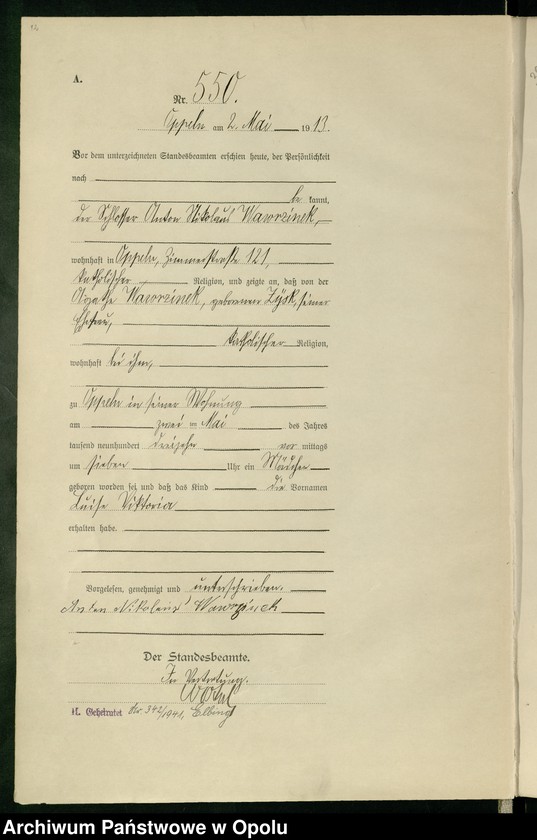 A.
Nr. 550.
Oppeln am 2. Mai 1913.
Vor dem unterzeichneten Standesbeamten erschien heute, der Persönlichkeit
nach
be kannt,
der Schlosser Anton Nikolaus Wawrzinek,
wohnhaft in Oppeln, Zimmerstraße 121,
katholischer Religion, und zeigte an, daß von der
Agathe Wawrzinek, geborenen Zysk, seiner
Ehefrau,
katholischer Religion,
wohnhaft bei ihm,
zu Oppeln in seiner Wohnung
am zwei ten Mai des Jahres
tausend neunhundert dreizehn vor mittags
um sieben Uhr ein Mädchen
geboren worden sei, und daß das Kind die Vornamen
Luise Viktoria
erhalten habe.
Vorgelesen, genehmigt und unterschrieben.
Anton Nikolaus Wawrzinek
Der Standesbeamte.
In Vertretung.
Geheiratet Nr. 342/1941, Elbing
Archiwum Państwowe w Opolu